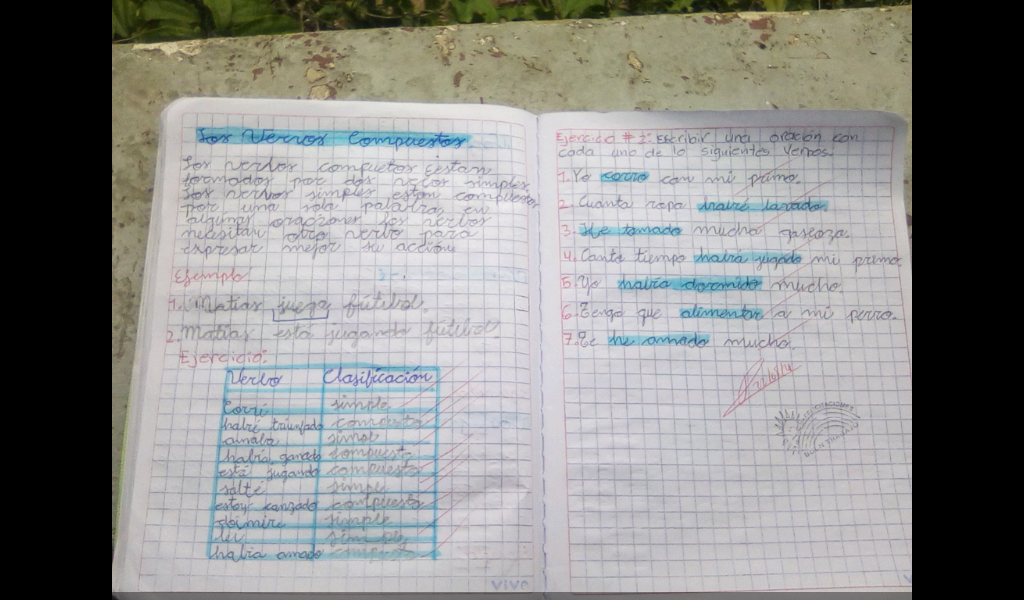 Los Vervos Compuestos
Los verbos compuetos estan
formados por dos verbos simples.
Los verbos simples estan compuestos
por una sola palabra, en
algunas oraciones los verbos
necesitan otro verbo para
expresar mejor su acción.
Ejemplo:
1. Matías juega fútbol.
2. Matías está jugando fútbol.
Ejercicio:
Verbo Clasificación
Corrí simple
habré triunfado compuesto
amaba simple
había ganado compuesto
está jugando compuesto
salté simple
estoy canzado compuesto
dormiré simple
leí simple
había amado compuesto
VIVO
Ejercicio # 2: Escribir una oración con
cada uno de lo siguientes verbos.
1. Yo corro con mi primo.
2. Cuanta ropa habré lavado.
3. He tomado mucha gaseoza.
4. Canto tiempo habrá jugado mi primo.
5. Yo había doromido mucho.
6. Tengo que alimentar a mi perro.
7. Te he amado mucho.